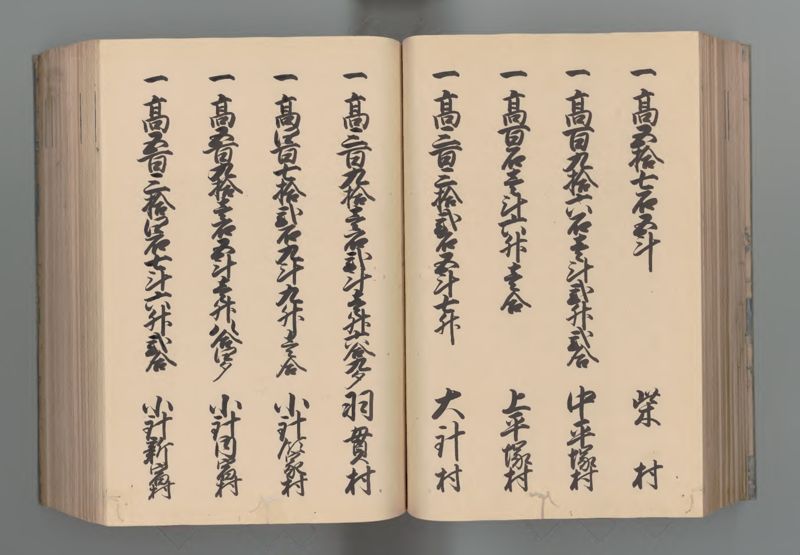 一 高五拾七石五斗 柴村
一 高百九拾六石壱斗弐升弐合 中平塚村
一 高百石壱斗六升壱合 上平塚村
一 高三百三拾弐石五斗七升 大針村
一 高三百九拾壱石弐斗壱升六合九夕 羽貫村
一 高四百七拾弐石九斗九升壱合 小針 村
一 高五百九拾壱石五斗壱升八合四夕 小針内宿村
一 高五百三拾四石七斗六升弐合 小針新宿村